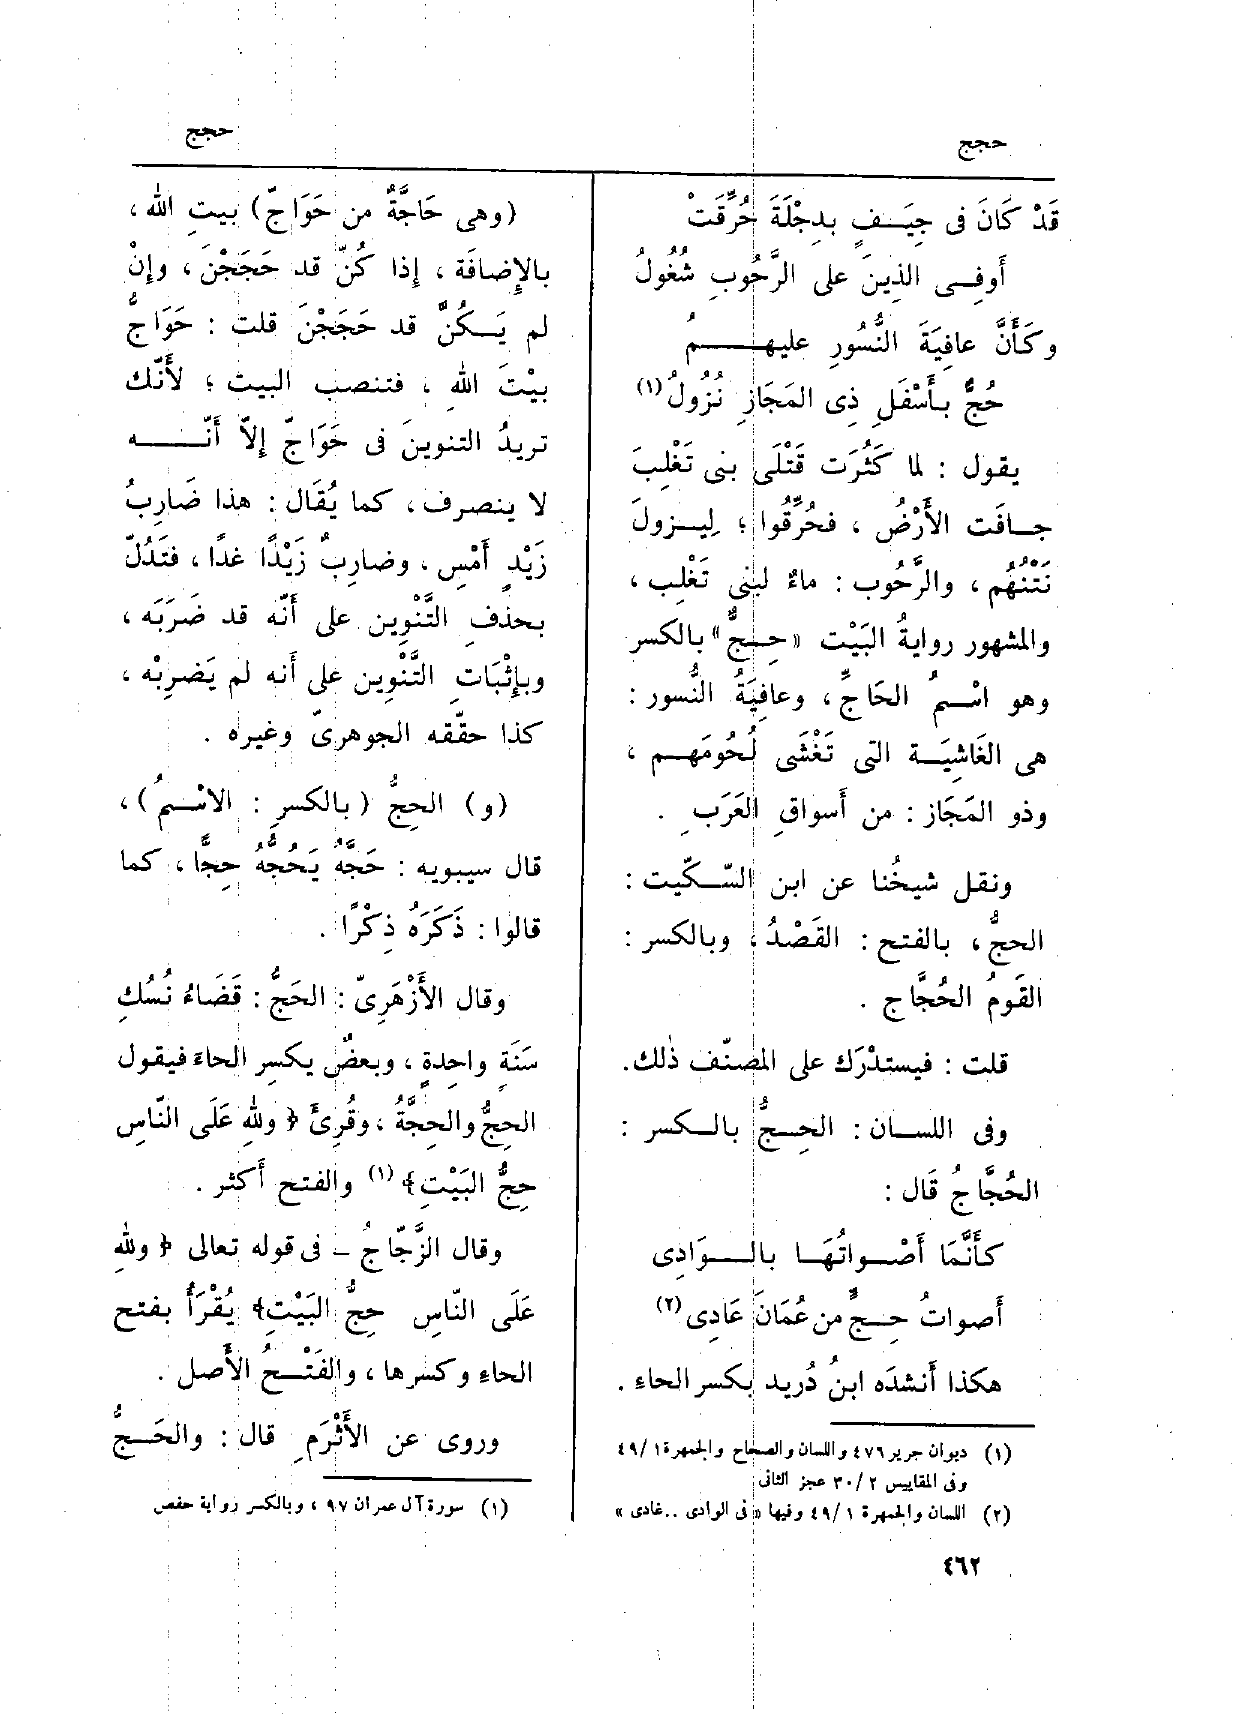 حجج
حجج
قَدْ كَانَ فى جِيَفٍ بِدِجْلَةَ حُرِّقَتْ
أَوفِى الذِينَ على الرَّحُوبِ شُغُولُ
وكَأَنَّ عافِيَةَ النُّسُورِ عليهمُ
حُجٌّ بأَسْفَلِ ذِى المَجَازِ نُزُولُ (١)
يقول : لما كَثُرَت قَتْلَى بنى تَغْلِبَ
جافَت الأَرْضُ ، فحُرِّقُوا ؛ لِيزولَ
نَتْنُهُم ، والرَّحُوب : ماءٌ لبنى تَغْلِب ،
والمشهور روايةُ البَيْت « حِجٌّ » بالكسر
وهو اسْمُ الحَاجِّ ، وعافِيَةُ النُّسور :
هى الغَاشِيَة التى تَغْشَى لُحُومَهم ،
وذو المَجَاز : من أَسواقِ العَرَبِ .
ونقل شيخُنا عن ابن السّكّيت :
الحجُّ ، بالفتح : القَصْدُ ، وبالكسر :
القَومُ الحُجَّاج .
قلت : فيستدْرَك على المصنّف ذلك .
وفى اللسان : الحِجُّ بالكسر :
الحُجَّاجُ قَال :
كأَنَّمَا أَصْواتُهَا بالوَادِى
أَصواتُ حِجٍّ من عُمَانَ غَادِى (٢)
هكذا أَنشدَه ابنُ دُريد بكسر الحاء .
(١) ديوان جرير ٤٧٦ واللسان والصحاح والجمهرة ١ /٤٩
وفى المقاييس ٢ /٣٠ عجز الثانى
(٢) اللسان والجمهرة ١ /٤٩ وفيها « فى الوادى .. غادى »
(وهى حَاجَّةٌ من حَوَاجّ) بيتِ الله ،
بالإِضافَة ، إذا كُنّ قد حَجَجْنَ ، وإنْ
لم يَكُنَّ قد حَجَجْنَ قلت : حَوَاجُّ
بيْتَ اللهِ ، فتنصب البيت ؛ لأَنّك
تريدُ التنوينَ فى حَوَاجّ إِلاّ أَنّه
لا ينصرف ، كما يُقَال : هذا ضَارِبُ
زَيْدٍ أَمْسِ ، وضارِبٌ زَيْدًا غدًا ، فتَدُلّ
بحذفِ التَّنْوِين على أَنّه قد ضَرَبَه ،
وبإِثْبَاتِ التَّنْوِين على أَنه لم يَضرِبْه ،
كذا حقّقه الجوهرىّ وغيره .
(و) الحِجُّ (بالكسرِ : الاسْمُ) ،
قال سيبويه : حَجَّهُ يَحُجُّهُ حِجًّا ، كما
قالوا : ذَكَرَهُ ذِكْرًا .
وقال الأَزْهَرِىّ : الحَجُّ : قَضَاءُ نُسُكِ
سَنَةٍ واحِدةٍ ، وبعضٌ يكسِر الحاءَ فيقول
الحِجُّ والحِجَّةُ ، وقُرِئَ ﴿ وللهِ عَلَى النّاسِ
حِجُّ البَيْتِ﴾ (١) والفتح أَكثر .
وقال الزّجّاجُ ــ فى قوله تعالى ﴿ وللهِ
عَلَى النّاسِ حِجُّ البَيْتِ﴾ يُقْرَأُ بفتح
الحاء وكسرها ، والفَتْحُ الأَصل .
وروى عن الأَثْرَمِ قال : والحَجُّ
(١) سورة آل عمران ٩٧ ، وبالكسر رواية حفص
٤٦٢